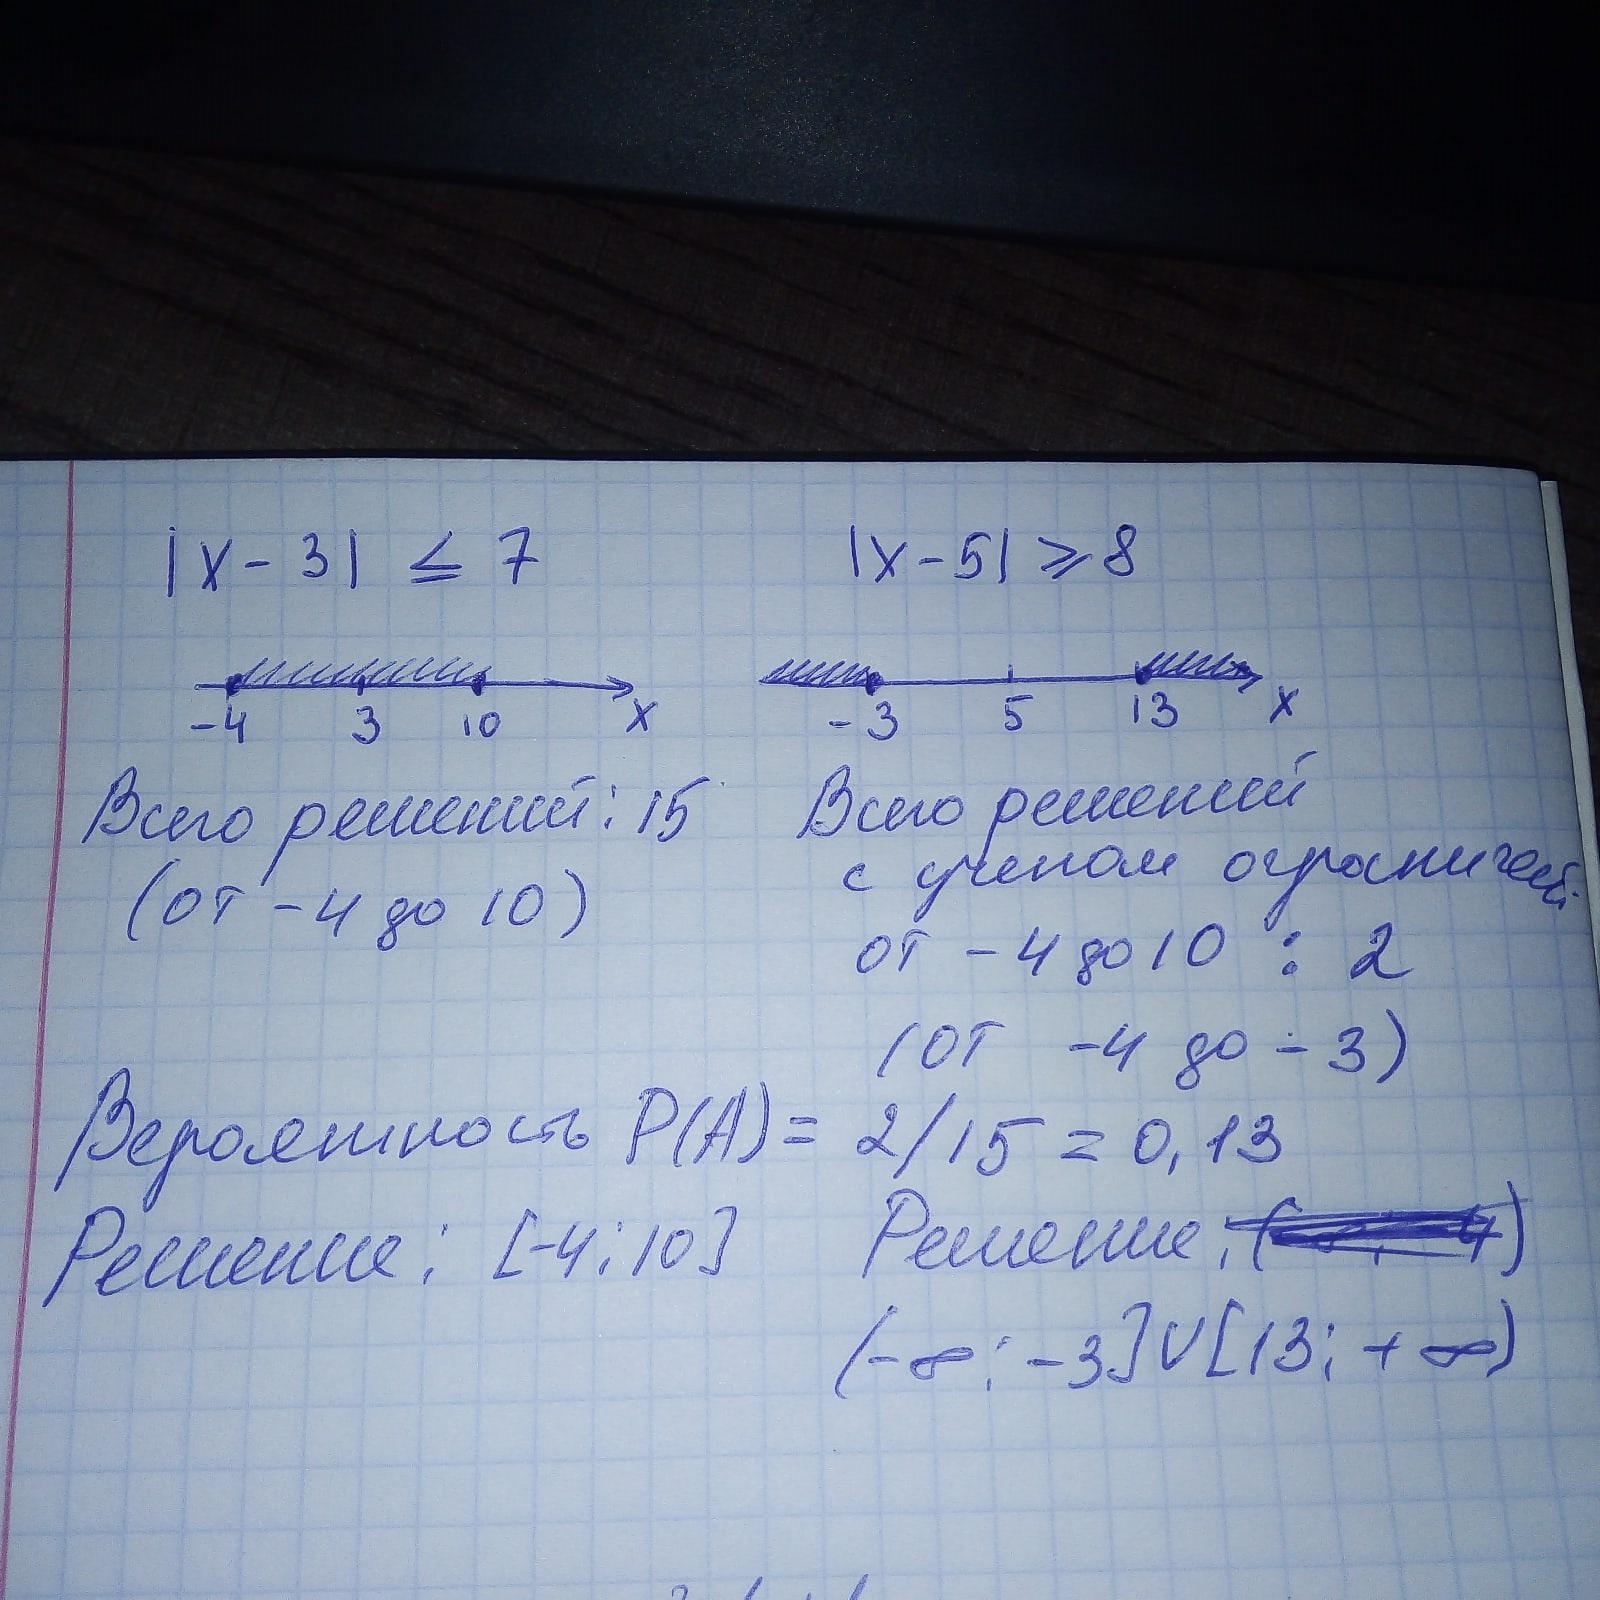 |x - 3| ≤ 7
|x - 5| ≥ 8
-4 3 10 x
-3 5 13 x
Всего решений: 15
(от -4 до 10)
Всего решений
с учетом ограничен.
от -4 до 10 : 2
(от -4 до -3)
Вероятность P(A) = 2/15 = 0,13
Решение: [-4; 10]
Решение:
(-∞; -3] ∪ [13; +∞)